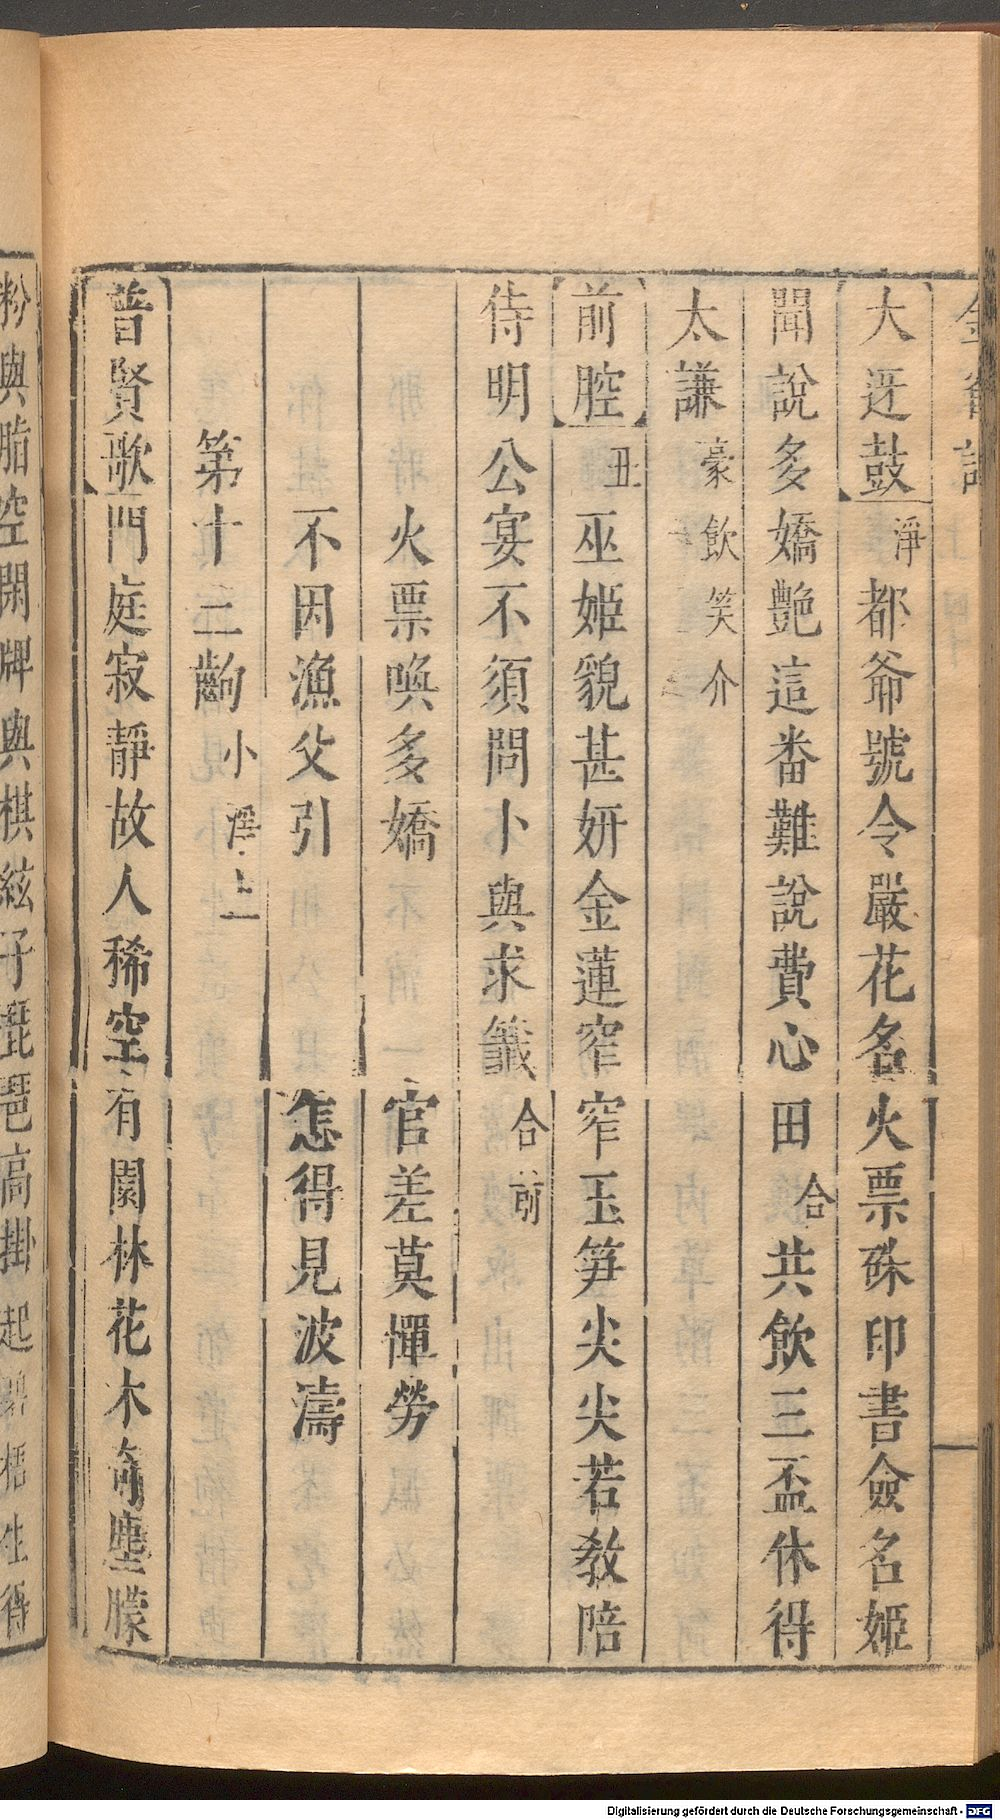 大迓鼓淨都爺號令嚴花名火票硃印書僉名姬
聞說多嬌艷這畨難說費心田合共飲三盃休得
太謙豪飲笑介
前腔丑巫姬貌甚妍金蓮窄窄玉笋尖尖若教陪
侍明公宴不須問卜與求籤合前
火票喚多嬌　官差莫憚勞
不因漁父引　怎得見波濤
第十三齣小淨上
普賢歌門庭寂靜故人稀空有園林花木奇塵朦
粉與脂空閑牌與棋絃子琵琶高掛起碧梧生得
Digitalisierung gefördert durch die Deutsche Forschungsgemeinschaft - DFG